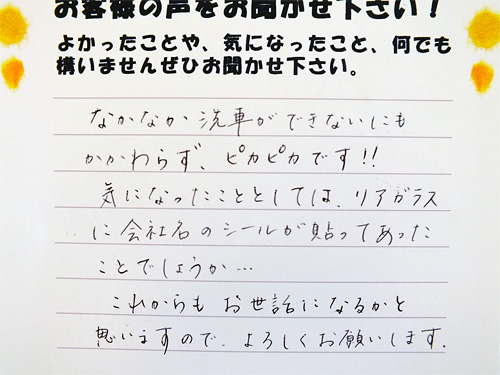 お客様の声をお聞かせ下さい！
よかったことや、気になったこと、何でも
構いませんぜひお聞かせ下さい。
なかなか洗車ができないにも
かかわらず、ピカピカです!!
気になったこととしては、リアガラス
に会社名のシールが貼ってあった
ことでしょうか…
これからもお世話になるかと
思いますので、よろしくお願いします.